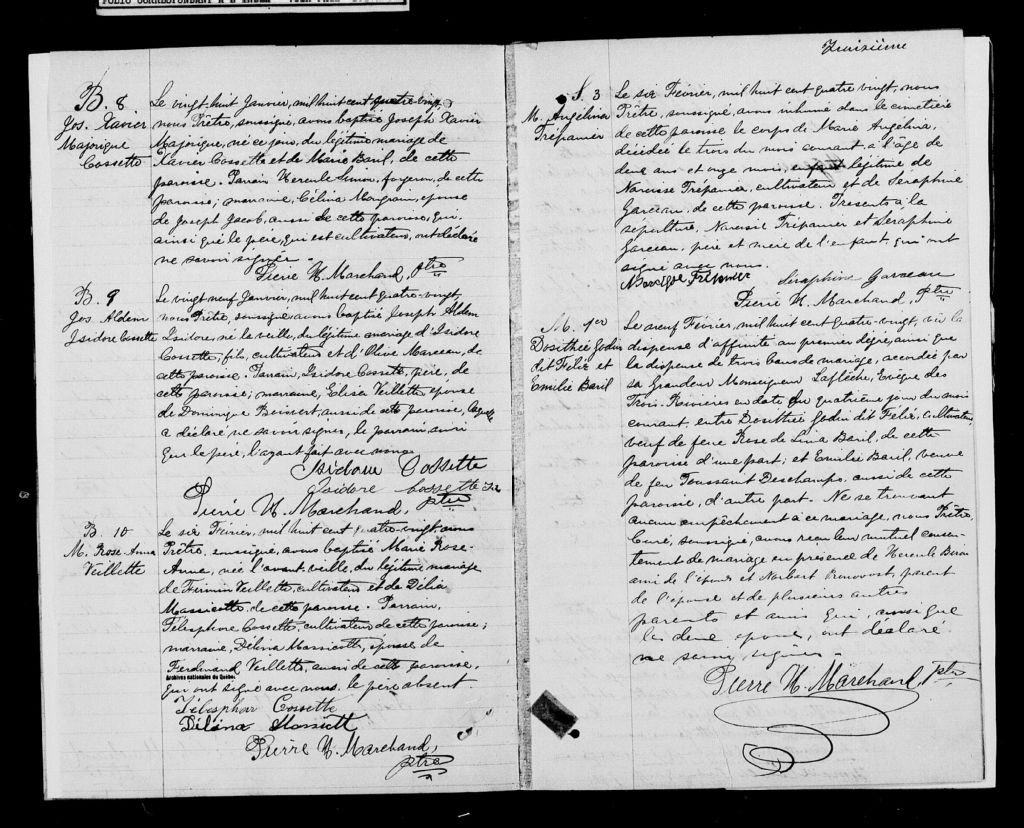 B. 8
Jos. Xavier
Majorique
Cossette
Le vingt-huit Janvier, mil huit cent quatre-vingt,
nous Prêtre, soussigné, avons baptisé Joseph Xavier
Majorique, né ce jour, du légitime mariage de
Xavier Cossette et de Marie Baril, de cette
paroisse. Parrain Hercule Simon, forgeron, de cette
paroisse; marraine, Célina Mongrain, épouse
de Joseph Jacob, aussi de cette paroisse, qui,
ainsi que le père, qui est cultivateur, ont déclaré
ne savoir signer.
Pierre H. Marchand, ptre
B. 9
Jos. Aldem
Isidore Cossette
Le vingt-neuf Janvier, mil huit cent quatre-vingt,
nous Prêtre, soussigné avons baptisé Joseph Aldem
Isidore, né la veille, du légitime mariage d'Isidore
Cossette, fils, cultivateur et d'Olive Marceau, de
cette paroisse. Parrain, Isidore Cossette, père, de
cette paroisse; marraine, Elisa Veillette épouse
de Domingue Boisvert, aussi de cette paroisse, laquelle
a déclaré ne savoir signer, le parrain ainsi
que le père, l'ayant fait avec nous
Isidore Cossette
Isidore Cossette Fils
Pierre H. Marchand, ptre
B. 10
M. Rose-Anna
Veillette
Le six Février, mil huit cent quatre-vingt, nous
Prêtre, soussigné, avons baptisé Marie Rose-
Anna, née l'avant veille, du légitime mariage
de Firmin Veillette, cultivateur et de Délia
Massicotte, de cette paroisse. Parrain,
Télesphore Cossette, cultivateur de cette paroisse;
marraine, Délina Massicotte, épouse de
Ferdinand Veillette, aussi de cette paroisse,
Archives nationales du Québec
qui ont signé avec nous. le père absent.
Télesphor Cossette
Délina Massicott
Pierre H. Marchand,
ptre
Troisième
S. 3
M. Angélina
Trépanier
Le six Février, mil huit cent quatre vingt, nous
Prêtre, soussigné, avons inhumé dans le cimetière
de cette paroisse le corps de Marie Angélina,
décédée le trois du mois courant, à l'âge de
deux ans et onze mois, enfant légitime de
Narcisse Trépanier, cultivateur et de Séraphine
Garceau, de cette paroisse. Présents à la
sépulture, Narcisse Trépanier et Séraphine
Garceau, père et mère de l'enfant, qui ont
signé avec nous.
Narcisse Trépanier Séraphine Garceau
Pierre H. Marchand, Ptre
M. 1er
Dosithée Godin
dit Felix et
Emilie Baril
Le neuf Février, mil huit cent quatre-vingt, vu la
dispense d'affinité au premier degré, ainsi que
la dispense de trois bans de mariage, accordée par
sa Grandeur Monseigneur Laflèche, Evêque des
Trois-Rivières en date du quatrième jour du mois
courant, entre Dosithée Godin dit Felix, cultivateur,
veuf de feue Rose de Lima Baril, de cette
paroisse d'une part; et Emilie Baril, veuve
de feu Toussaint Deschamps, aussi de cette
paroisse, d'autre part. Ne se trouvant
aucun empêchement à ce mariage, nous Prêtre,
Curé, soussigné, avons reçu leur mutuel consen-
tement de mariage en présence de Hercule
ami de l'époux et Norbert Pronovost, parent
de l'épouse et de plusieurs autres
parents et amis qui, ainsi que
les deux époux, ont déclaré
ne savoir signer.
Pierre H. Marchand, Ptre